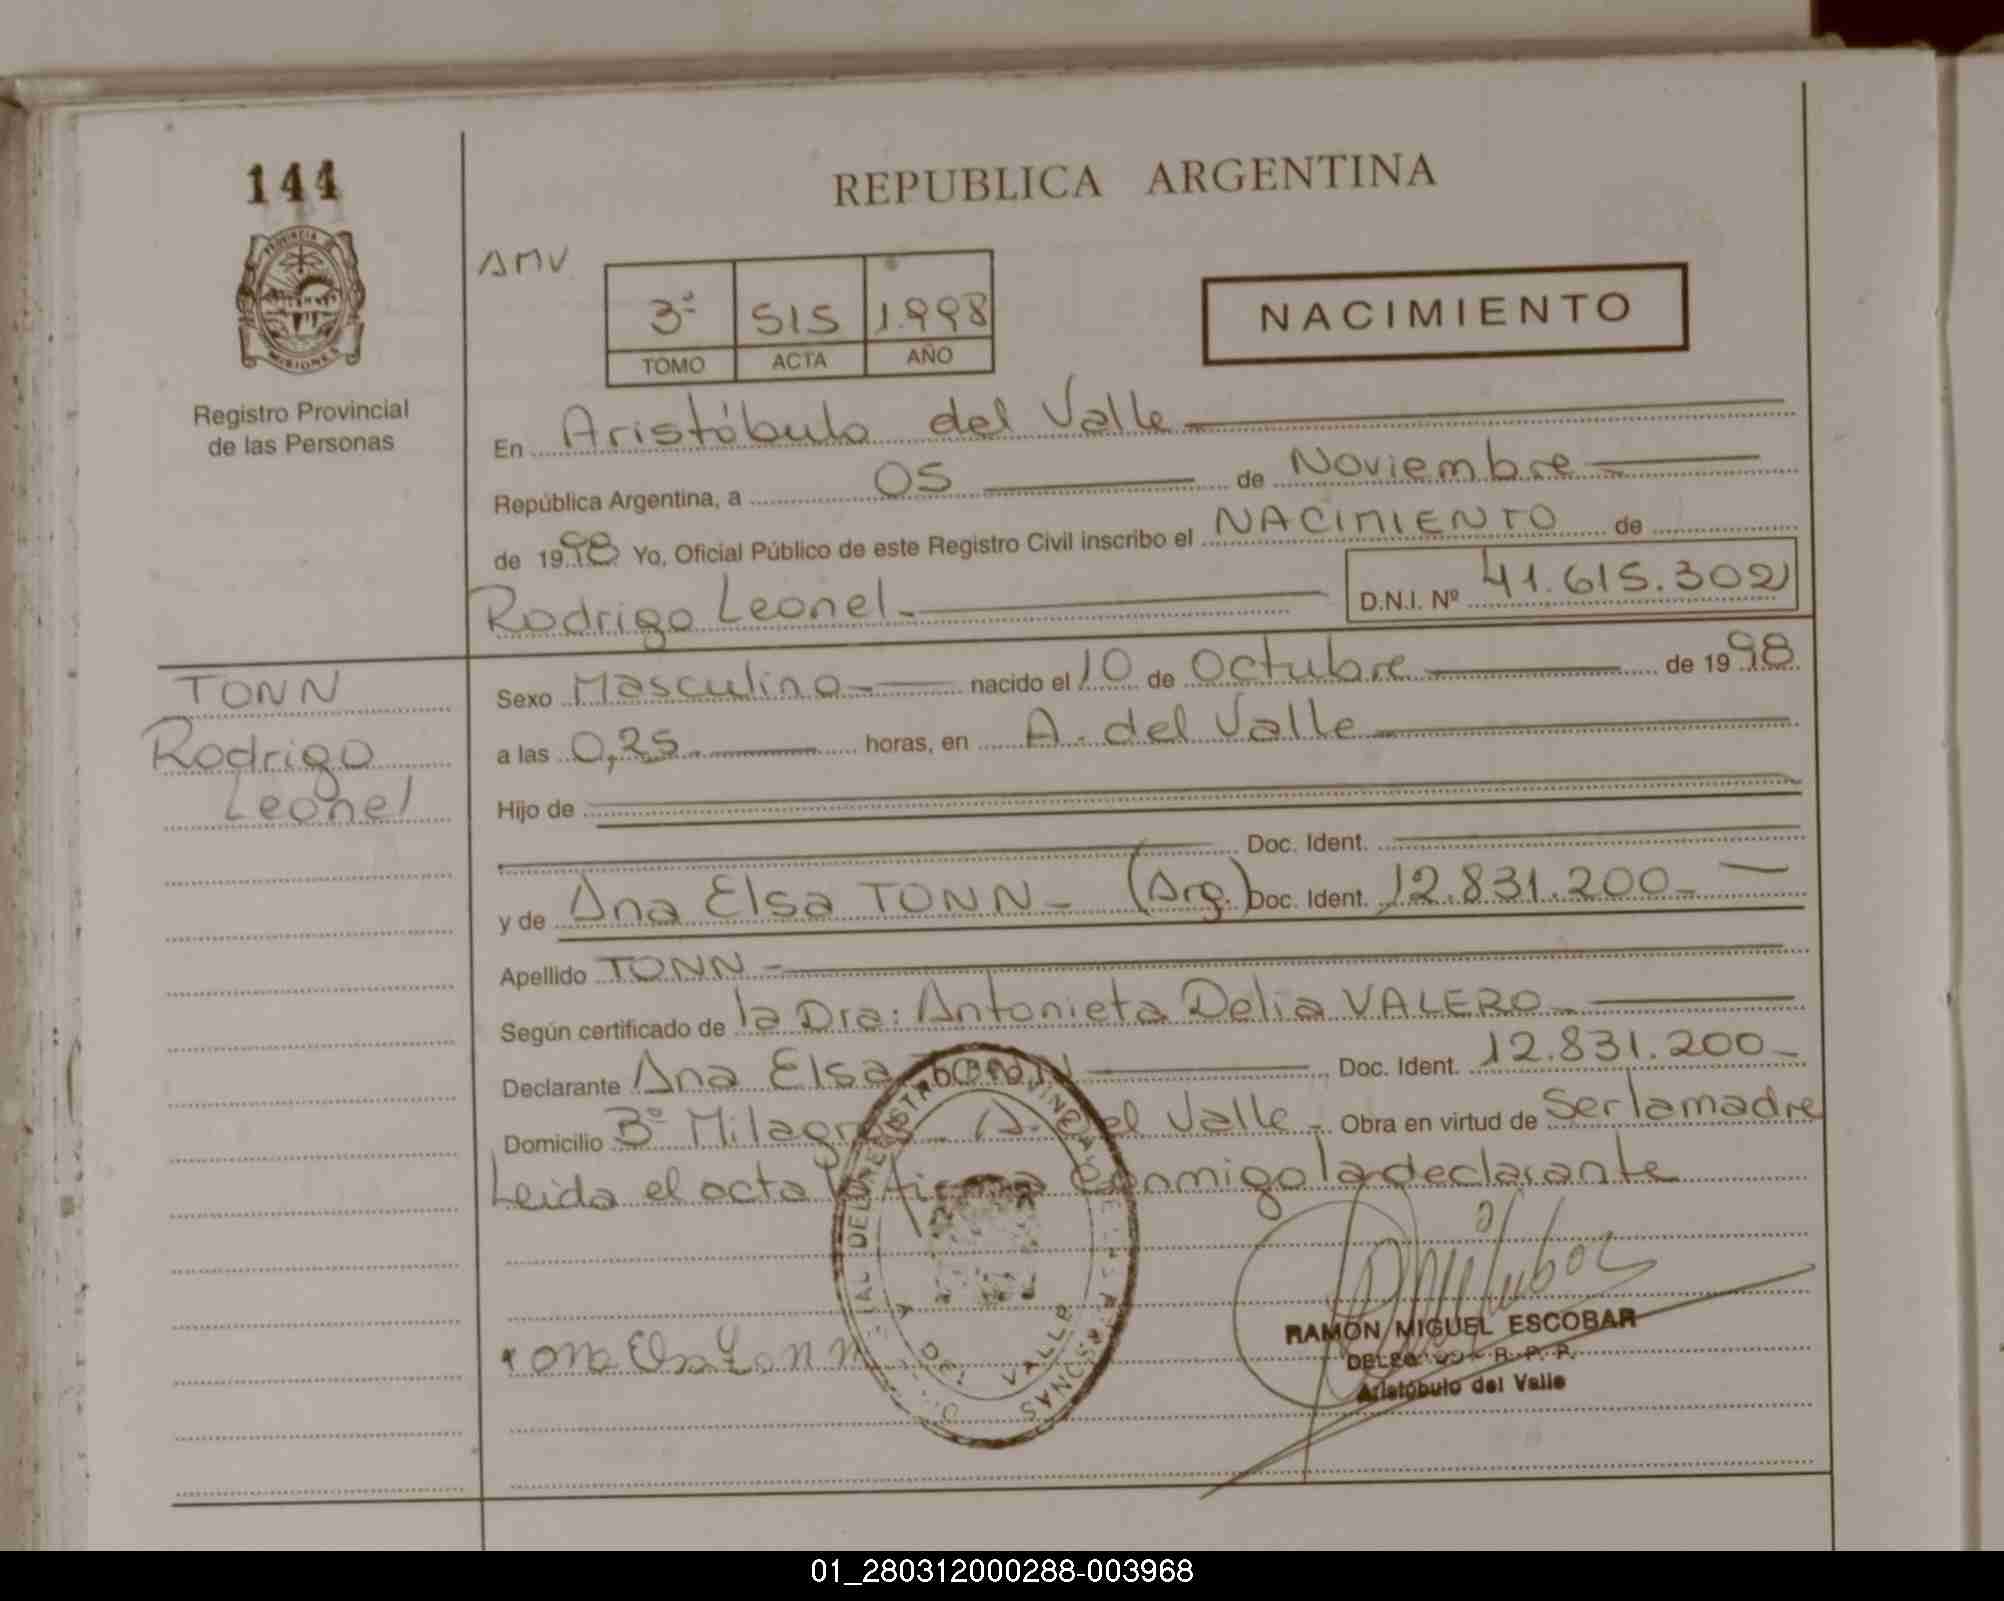 144
PROVINCIA DE
MISIONES
Registro Provincial
de las Personas
REPUBLICA ARGENTINA
AMV
3º 515 1.998
TOMO ACTA AÑO
NACIMIENTO
En Aristóbulo del Valle
República Argentina, a 05 de Noviembre
de 1998 Yo, Oficial Público de este Registro Civil inscribo el NACIMIENTO de
Rodrigo Leonel. D.N.I. Nº 41.615.302
TONN
Rodrigo
Leonel
Sexo Masculino nacido el 10 de Octubre de 1998
a las 0,25 horas, en A. del Valle
Hijo de
Doc. Ident.
y de Ana Elsa TONN (Arg.) Doc. Ident. 12.831.200
Apellido TONN
Según certificado de la Dra: Antonieta Delia VALERO
Declarante Ana Elsa TONN Doc. Ident. 12.831.200
Domicilio Bº Milagros A. del Valle Obra en virtud de Ser la madre
Leida el acta la firma conmigo la declarante
Ana Elsa Tonn
RAMÓN MIGUEL ESCOBAR
R. P. P.
Aristóbulo del Valle
01_280312000288-003968